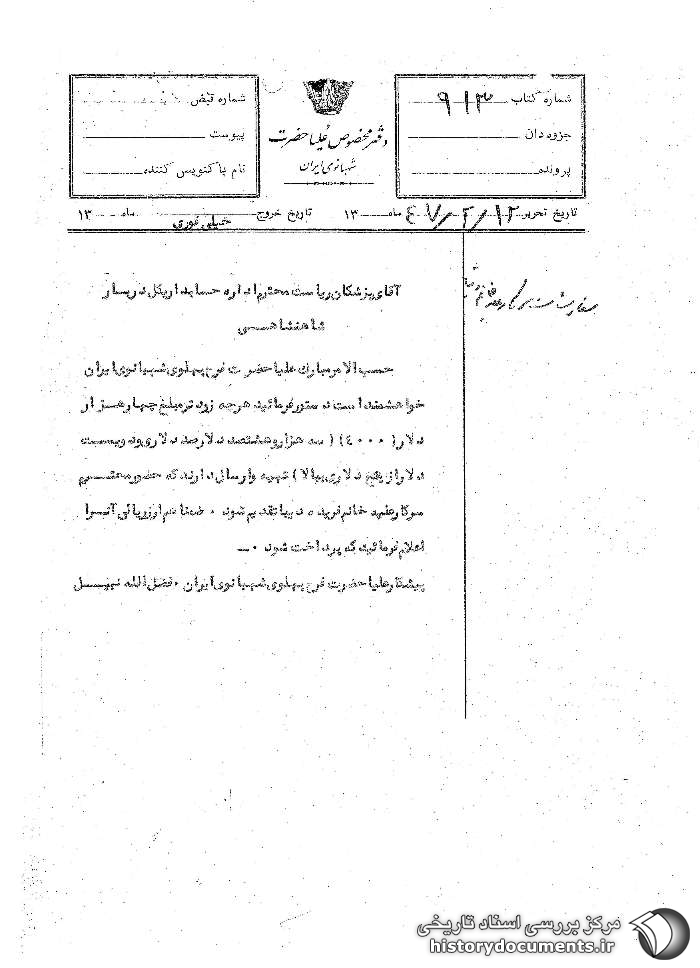 شماره کتاب ۹۱۳
جزوه دان
پرونده
دفتر مخصوص علیاحضرت
شهبانوی ایران
شماره قبض
پیوست
نام پاکنویس کننده
تاریخ تحریر ۱۲/۲/۴۷ ماه ۱۳
تاریخ خروج ماه ۱۳
خیلی فوری
آقای پزشکان ریاست محترم اداره حسابداری کل دربار
شاهنشاهی
حسب الامر مبارک علیاحضرت فرح پهلوی شهبانوی ایران
خواهشمند است دستور فرمائید هرچه زودتر مبلغ چهار هزار
دلار (۴۰۰۰) ( سه هزار و هشتصد دلار صد دلاری و دویست
دلار از پنج دلاری ببالا ) تهیه و ارسال دارند که حضور محترم
سرکار علیه خانم فریده دیبا تقدیم شود ۰ ضمنا هم ارز ریالی آنرا
اعلام فرمائید که پرداخت شود ۰ ـ
پیشکار علیاحضرت فرح پهلوی شهبانوی ایران ۰ فضل الله نبیل
مرکز بررسی اسناد تاریخی
historydocuments.ir